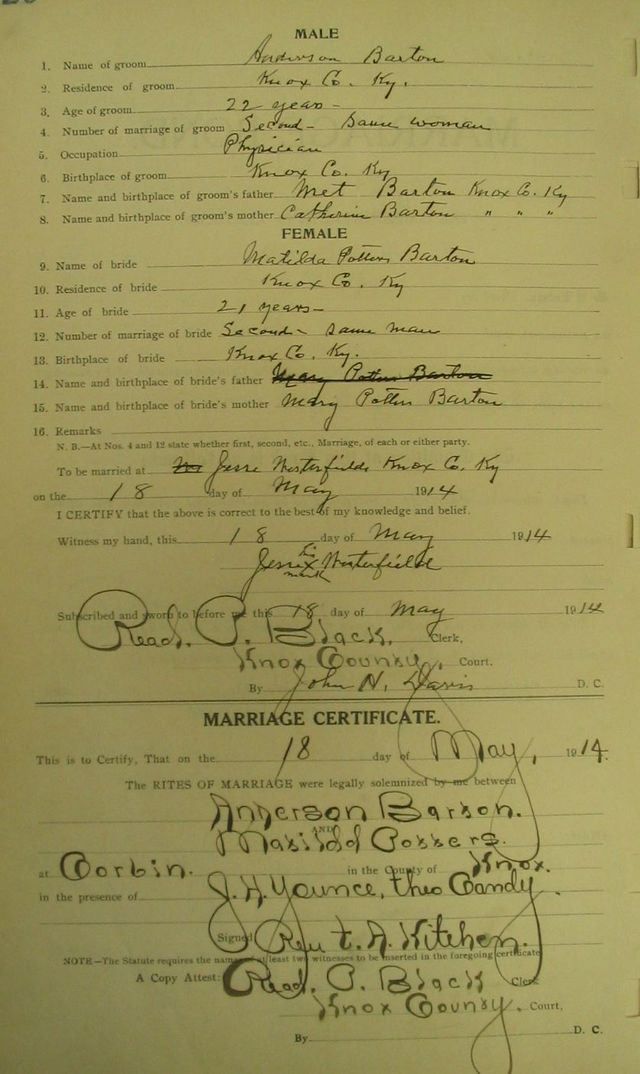 MALE
1. Name of groom Anderson Barton
2. Residence of groom Knox Co. Ky.
3. Age of groom 22 years -
4. Number of marriage of groom Second - Same woman
5. Occupation Physician
6. Birthplace of groom Knox Co. Ky
7. Name and birthplace of groom's father Met Barton Knox Co. Ky
8. Name and birthplace of groom's mother Catherine Barton " " "
FEMALE
9. Name of bride Matilda Potters Barton
10. Residence of bride Knox Co. Ky
11. Age of bride 21 years -
12. Number of marriage of bride Second - Same man
13. Birthplace of bride Knox Co. Ky.
14. Name and birthplace of bride's father Mary Potters Barton
15. Name and birthplace of bride's mother Mary Potters Barton
16. Remarks
N. B.—At Nos. 4 and 12 state whether first, second, etc., Marriage, of each or either party.
To be married at Jesse Westerfields Knox Co. Ky
on the 18 day of May 1914
I CERTIFY that the above is correct to the best of my knowledge and belief.
Witness my hand, this 18 day of May 1914
Jesse his x mark Westerfield
Subscribed and sworn to before me this 18 day of May 1914
Read. P. Black. Clerk,
Knox County. Court.
By John H. Davis D. C.
MARRIAGE CERTIFICATE.
This is to Certify, That on the 18 day of May, 1914.
The RITES OF MARRIAGE were legally solemnized by me between
Anderson Barton.
AND
Matild Potters.
at Corbin. in the County of Knox.
in the presence of J. H. Younce, theo Gandy.
Signed Rev t. A. Kitchen.
NOTE—The Statute requires the names of at least two witnesses to be inserted in the foregoing certificate
A Copy Attest: Read. P. Black Clerk
Knox County. Court,
By D. C.